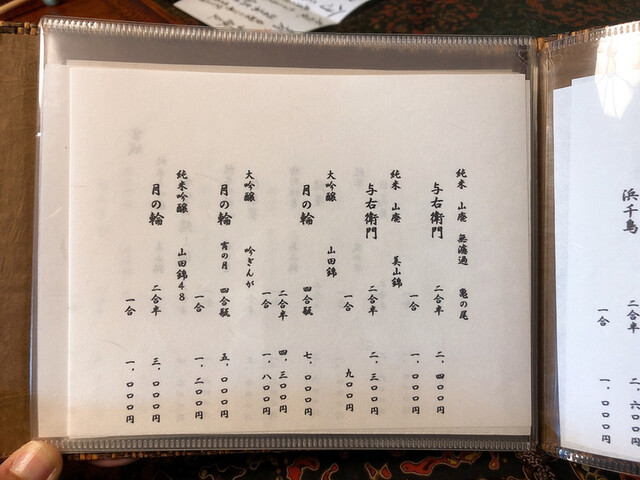 純米 山廃 無濾過 亀の尾
与右衛門 二合半 二、四〇〇円
一合 一、〇〇〇円
純米 山廃 美山錦
与右衛門 二合半 二、三〇〇円
一合 九〇〇円
大吟醸 山田錦
月の輪 四合瓶 七、〇〇〇円
二合半 四、三〇〇円
一合 一、八〇〇円
大吟醸 吟ぎんが
月の輪 宵の月 四合瓶 五、〇〇〇円
一合 一、二〇〇円
純米吟醸 山田錦48
月の輪 二合半 三、〇〇〇円
一合 一、〇〇〇円
浜千鳥 二合半 二、六〇〇円
一合 一、〇〇〇円